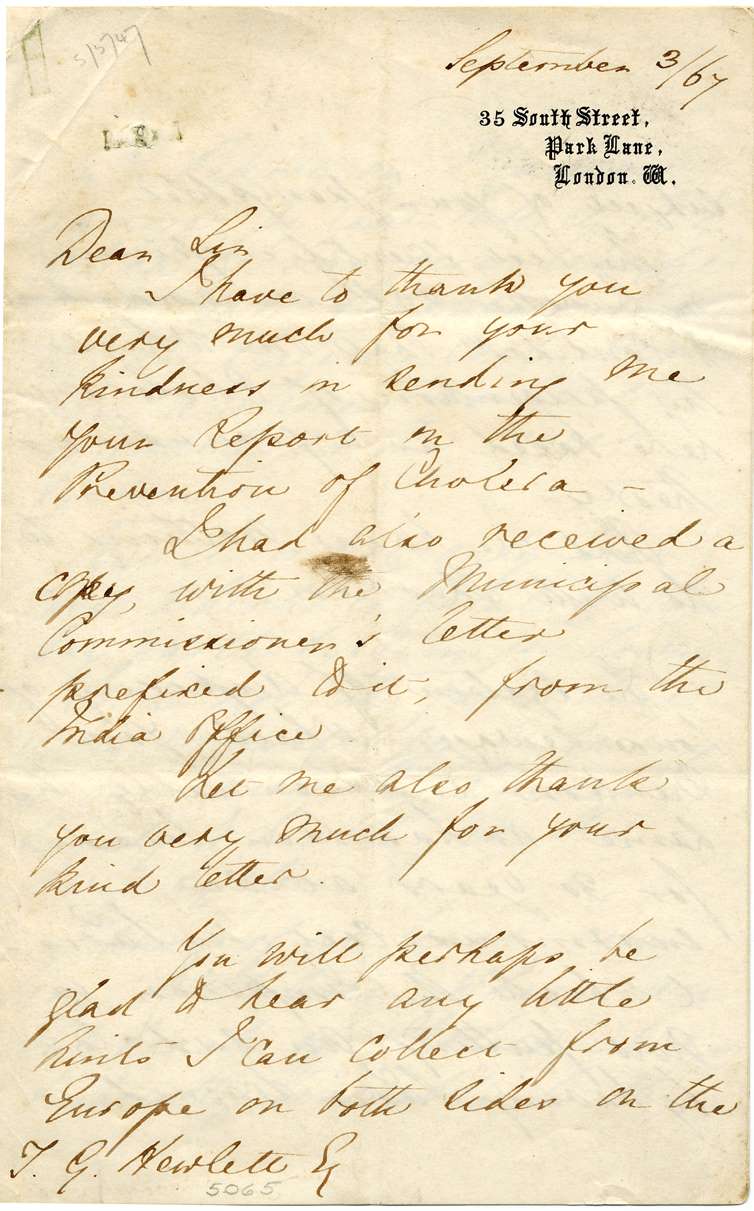 5/5/47
September 3/67
35 South Street,
Park Lane,
London. W.
Dear Sir
I have to thank you
very much for your
kindness in sending me
your Report on the
Prevention of Cholera –
I had also received a
copy, with the Municipal
Commissioner's letter
prefixed to it, from the
India Office
Let me also thank
you very much for your
kind letter.
You will perhaps be
glad to hear any little
hints I can collect from
Europe on both sides on the
T. G. Hewlett Esq
5065